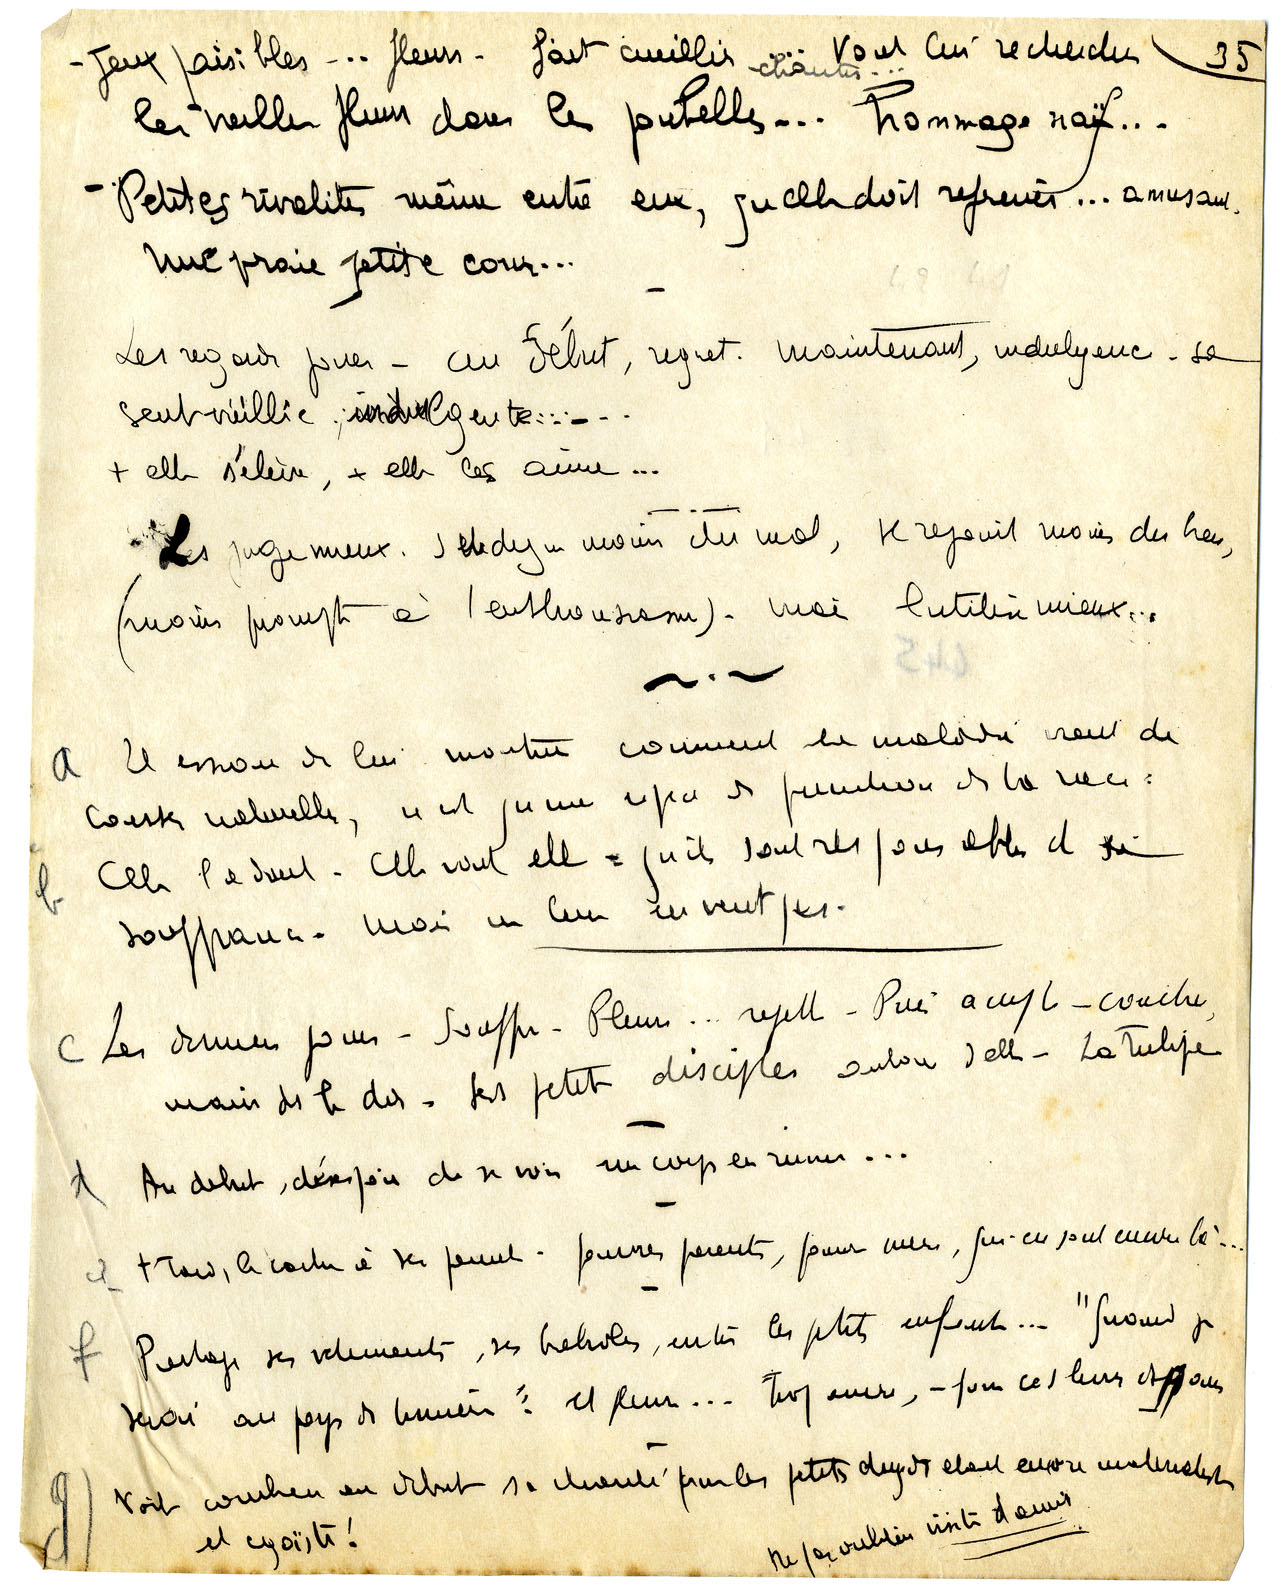 - Jeux paisibles -... fleurs - font cueillir ... Vont lui rechercher 35
chants...
les vieilles fleurs dans les poubelles... hommage naïf...
- Petites rivalités même entre eux, qu'elle doit refréner... amusant.
Une vraie petite cour...
Les regarde jouer - au début, regret. Maintenant, indulgence - se
sent vieillie, indulgente...
+ elle s'élève, + elle les aime...
Les juge mieux. moins du mal, se réjouit moins du bien,
(moins prompte à l'enthousiasme) - mais l'utilise mieux...
a Il essaie de lui montrer comment la maladie vient de
causes naturelles, n'est qu'une de punition de la race :
b Elle l'a dout. Elle voit elle = qu'ils sont responsables de sa
souffrance. Mais ne leur en veut pas.
c Les derniers jours - Souffre - Pleurs... rejette - Puis accepte - couchée,
mains ds le dos - Ses petits disciples autour d'elle - La Tulipe
d Au début, désespoir de se voir un corps en ruines...
e + Tard, le cache à ses parents - pauvres parents, pauvres vieux, qui en sont encore là...
f Partage ses vêtements, ses babioles, entre les petits enfants... "Quand je
serai au pays de lumière" : et pleure... Trop encore, - pour ces leurs
g) Voit combien au début sa charité pour les petits était encore maternaliste
et égoïste !
Ne pas oublier visite d'amis